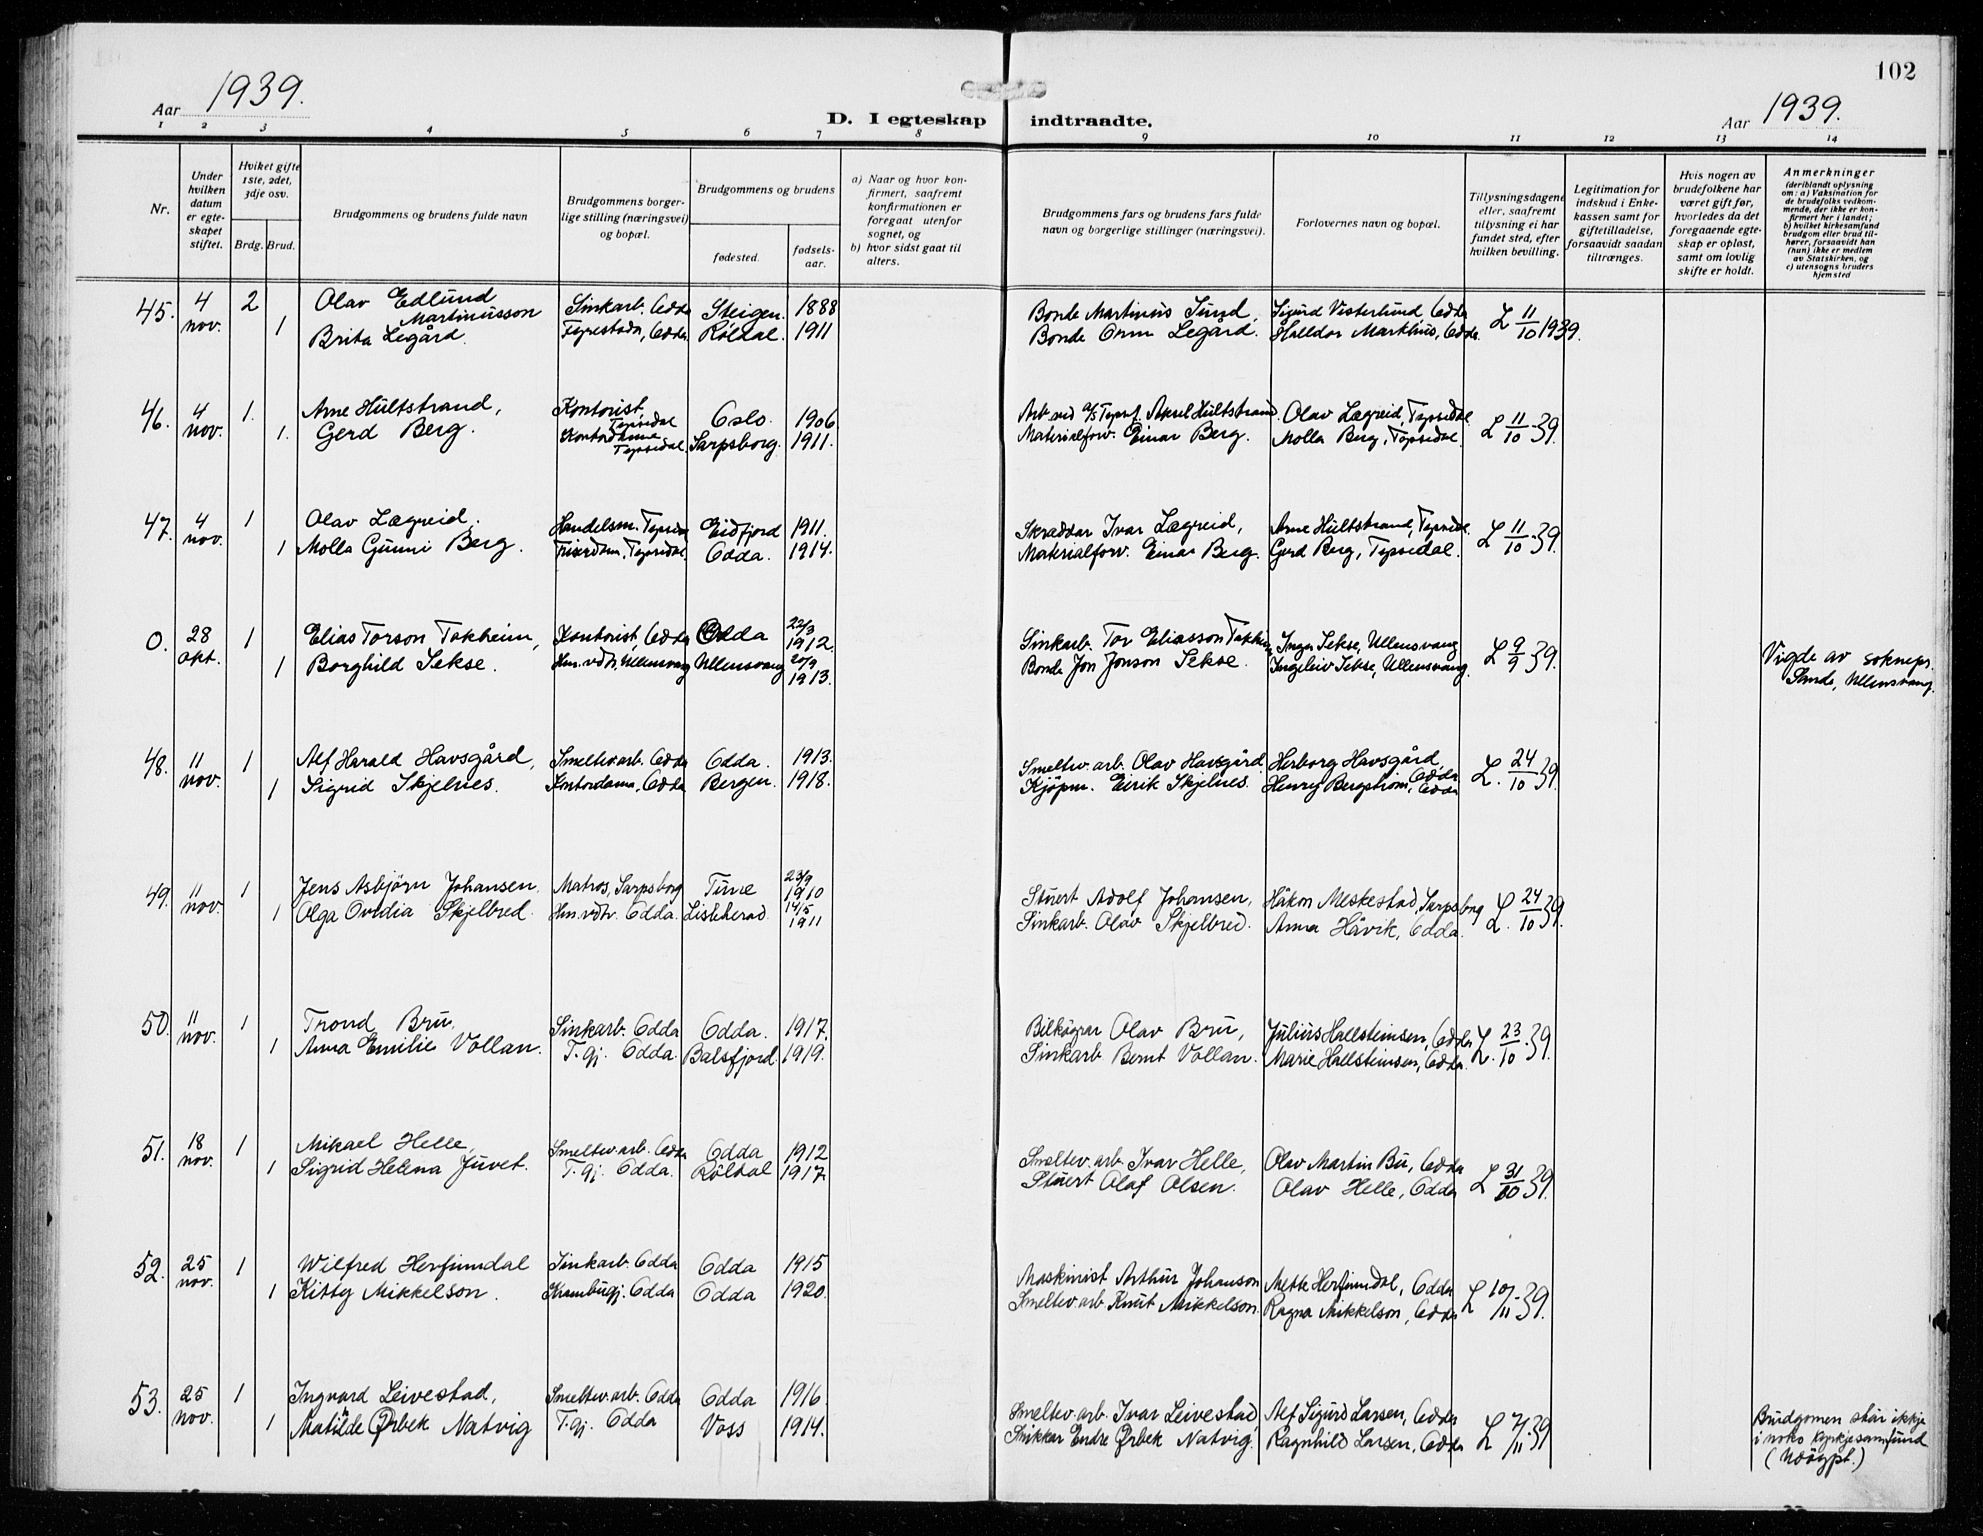 102
Aar 1939.
Aar 1939.
D. I egteskap indtraadte.
1 2 3 4 5 6 7 8 9 10 11 12 13 14
Nr.
Under hvilken datum er egteskapet stiftet.
Hviket gifte 1ste, 2det, 3dje osv.
Brdg. Brud.
Brudgommens og brudens fulde navn
Brudgommens borgerlige stilling (næringsvei) og bopæl.
Brudgommens og brudens
fødested.
fødselsaar.
a) Naar og hvor konfirmert, saafremt konfirmationen er foregaat utenfor sognet, og
b) hvor sidst gaat til alters.
Brudgommens fars og brudens fars fulde navn og borgerlige stillinger (næringsvei).
Forlovernes navn og bopæl.
Tillysningsdagene eller, saafremt tillysning ei har fundet sted, efter hvilken bevilling.
Legitimation for indskud i Enkekassen samt for giftetilladelse, forsaavidt saadan tiltrænges.
Hvis nogen av brudefolkene har været gift før, hvorledes da det foregaaende egteskap er opløst, samt om lovlig skifte er holdt.
Anmerkninger
(deriblandt oplysning om: a) Vaksination for de brudefolks vedkommende, der ikke er konfirmert her i landet; b) hvilket kirkesamfund brudgom eller brud tilhører, forsaavidt han (hun) ikke er medlem av Statskirken, og c) utensogns bruders hjemsted
45. 4 nov. 2 Olav Edlund Martinusson Sinkarb. Odda Steigen. 1888 Bonde Martinus Sund, Sigurd Vesterlund, Odda L 11/10 1939.
1 Brita Legård. Odda Röldal. 1911 Bonde Orm Legård. Halldor Markhus, Odda.
46. 4 nov. 1. Arne Hultstrand, Kontorist, Tyssedal Oslo. 1906. Arb. ved A/S Tyssef. Aksel Hultstrand Olav Lægreid, Tyssedal L 11/10 39.
1. Gerd Berg. Kontordame Tyssedal Sarpsborg. 1911. Materialforv. Einar Berg. Molla Berg, Tyssedal.
47. 4 nov. 1 Olav Lægreid. Handelsm. Tyssedal Eidfjord 1911. Skreddar Ivar Lægreid, Arne Hultstrand, Tyssedal L 11/10 39.
1 Molla Gunni Berg. Friserdam, Tyssedal. Odda. 1914. Materialforv. Einar Berg. Gerd Berg, Tyssedal.
0. 28 okt. 1 Elias Torson Tokheim, Kontorist, Odda Odda 22/3 1912. Sinkarb. Tor Eliasson Tokheim Inga Sekse, Ullensvang L 9/9 39.
1 Borghild Sekse. Hm. vdtr. Ullensvang Ullensvang 20/9 1913. Bonde Jon Jonson Sekse. Ingeleiv Sekse, Ullensvang. Vigde av soknepr. Sande, Ullensvang.
48. 11 nov. 1 Alf Harald Havsgård, Smeltev. arb. Odda Odda. 1913. Smeltev. arb. Olav Havsgård Herborg Havsgård, Odda L. 24/10 39
1 Sigrid Skjelnes. Kontordama, Odda Bergen. 1918. Kjöpm. Eirik Skjelnes. Henry Bergström, Odda
49. 11 nov. 1 Jens Asbjörn Johansen. Matros, Sarpsborg Tune 23/9 1910 Stuert Adolf Johansen, Håkon Meskestad, Sarpsborg L. 24/10 39.
1 Olga Ovidia Skjelbred. Hm. vdtr. Odda. Lisleherad. 14/5 1911 Sinkarb. Olav Skjelbred. Anna Håvik, Odda.
50. 11 nov. 1 Trond Bru. Sinkarb. Odda Odda. 1917. Bilkögrar Olav Bru, Julius Hallsteinsen, Odda L. 23/10 39.
1 Anna Emilie Vollan. T. gj. Odda. Balsfjord. 1919. Sinkarb Bernt Vollan. Marie Hallsteinsen, Odda.
51. 18 nov. 1 Mikael Helle, Smeltev. arb. Odda Odda 1912 Smeltev. arb. Ivar Helle, Olav Martin Bu, Odda L 31/10 39.
1 Sigrid Helena Juvet. T. gj. Odda. Röldal 1917. Stuert Olaf Olsen. Olav Helle, Odda
52. 25 nov. 1 Wilfred Herfundal Sinkarb. Odda Odda 1915 Maskinist Arthur Johanson Mette Herfundal, Odda L 10/11 39.
1 Kitty Mikkelson. Krambugj. Odda Odda 1920. Smeltev. arb. Knut Mikkelson. Ragna Mikkelson, Odda
53. 25 nov. 1 Ingvard Leivestad, Smeltev. arb. Odda Odda 1916. Smeltev. arb. Ivar Leivestad, Alf Sigurd Larsen, Odda L 7/11 39
1 Mathilde Ørbek Natvig T. gj. Odda Voss 1914. Snikkar Endre Ørbek Natvig. Ragnhild Larsen, Odda Brudgomen står ikkje i noko kyrkjesamfund (Udöypt.)